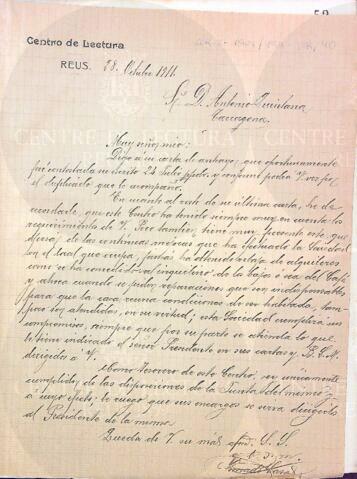 Centro de Lectura
REUS. 28. Octubre 1911.
Sr. D. Antonio Quintana
Tarragona.
Muy señor mio:
Digo a su carta de antiayo, que oportunamente
fué contestada su escrito 24 Julio ppdo. y conforme podra V. ver por
el duplicado que le acompaño.
En cuanto al resto de su última carta, he de
recordarle, que este Centro ha tenido siempre muy en cuenta los
requerimientos de V. Pero tambien tiene muy presente este, que
apesar de las continuas mejoras que ha efectuado la Sociedad
en el local que ocupa, jamás ha obtenido rebaja de alquileres
como se ha concedido al inquilino de los bajos o sea del Café
y ahora cuando se piden reparaciones que son indispensables
para que la casa reuna condiciones de ser habitada, tam-
poco son atendidas, en su virtud, esta Sociedad cumplirá sus
compromisos, siempre que por su parte se atienda lo que
le tiene indicado el señor Presidente en sus cartas y B.L.M.
dirigidos a V.
Como Tesorero de este Centro, soy únicamente
cumplidor de las disposiciones de la Junta del mismo y
a cuyo efecto le ruego que sus encargos se sirva dirigirlos
al Presidente de la misma.
Queda de V. su mas afmo. S. S.
q. e. s. m.